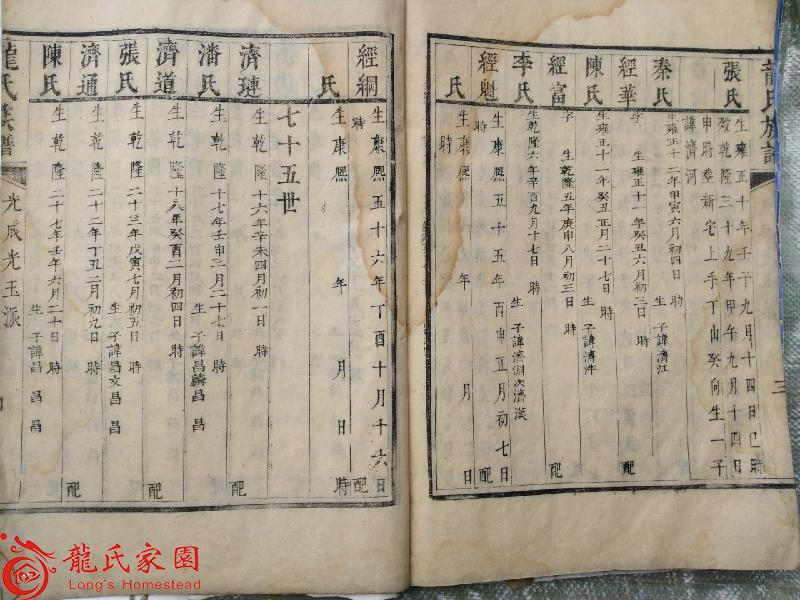 龍氏族譜
三
張氏 生雍正十年壬子九月十四日巳時
歿乾隆三十九年甲午九月十四日
申時葬新宅上手丁山癸向生一子
諱濟河
秦氏 生雍正十二年甲寅六月初四日 時 生 子諱濟江
經華 字 生雍正十一年癸丑六月初三日 時 配
陳氏 生雍正十一年癸丑正月二十七日 時 生 子諱濟汼
經富 字 生乾隆五年庚申八月初三日 時 配
李氏 生乾隆六年辛酉九月十七日 時 生 子諱濟淵次濟漢
經魁 生康熙五十五年丙申正月初七日
時 配
氏 生康熙 年 月 日
時
經綱 生康熙五十六年丁酉十月十六日
時 配
氏 生康熙 年 月 日 時
七十五世
濟璉 生乾隆十六年辛未四月初一日 時 配
潘氏 生乾隆十七年壬申二月二十七日 時 生 子諱昌麟昌 昌
濟道 生乾隆十八年癸酉二月初四日 時 配
張氏 生乾隆二十三年戊寅七月初五日 時 生 子諱昌文昌 昌
濟通 生乾隆二十二年丁丑二月初九日 時 配
陳氏 生乾隆二十七年壬午六月二十日 時 生 子諱昌 昌 昌
龍氏族譜
光成光玉派
龍氏家園
Long's Homestead